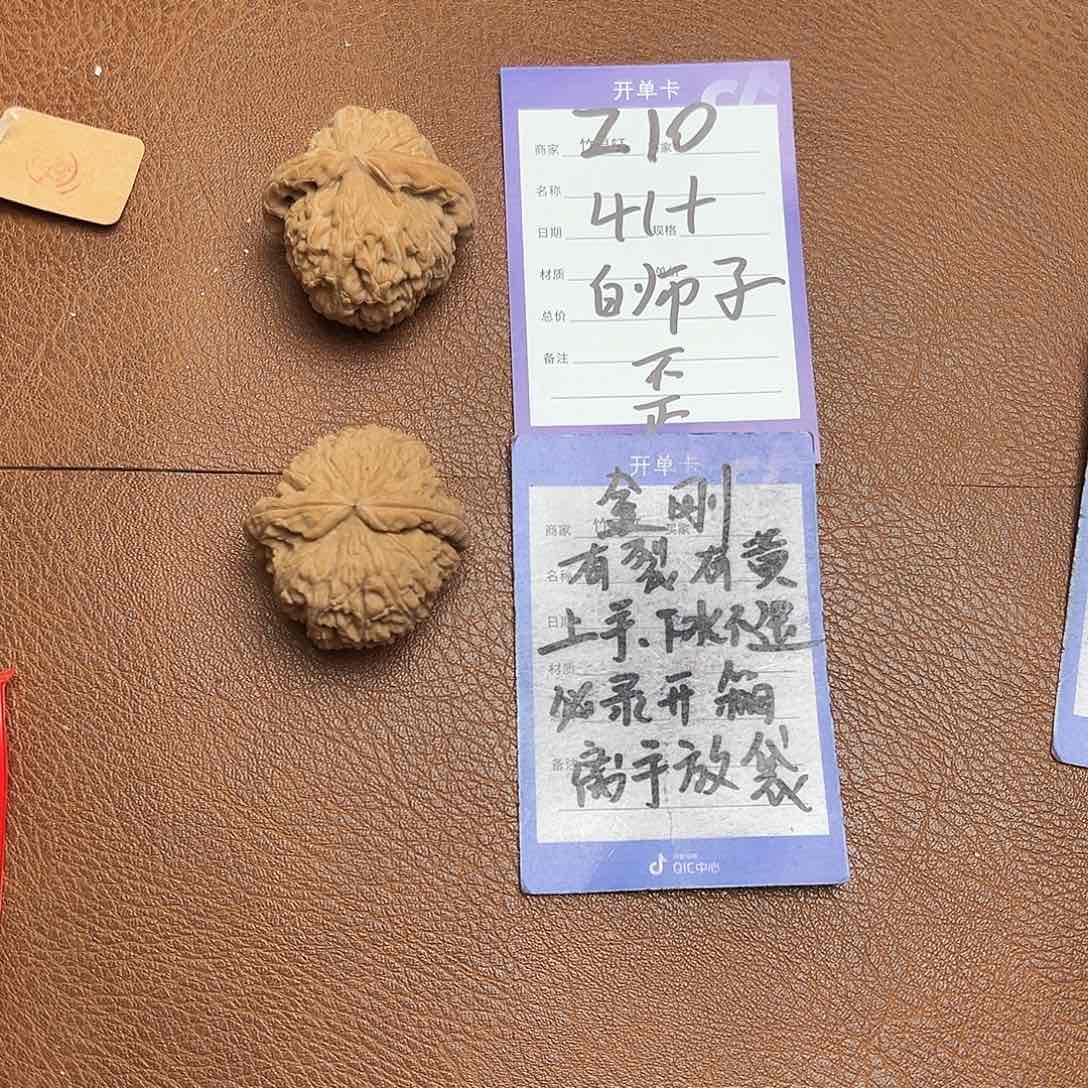 开单卡
商家 家
Z10
名称
41+
日期 规格
材质
白狮子
总价
备注
歪
开单卡
金刚
商家 买家
有裂有黄
名称
上手、下水不退
日期
材质
必录开箱
备注
离手放袋
QIC中心